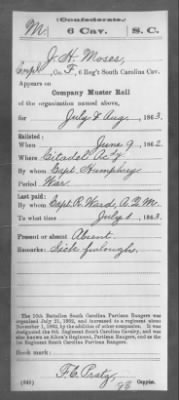 (Confederate.)
M 6 Cav. S. C.
J. H. Moses,
Corpl, Co. F, 6 Reg't South Carolina Cav.
Appears on
Company Muster Roll
of the organization named above,
for July & Aug, 1863.
Enlisted:
When June 9, 1862
Where Citadel Ac'y
By whom Capt. Humphrey
Period War
Last paid:
By whom Capt. R. Ward, A. Q. M.
To what time July 1, 1863.
Present or absent Absent.
Remarks: Sick furlough.
The 16th Battalion South Carolina Partisan Rangers was
organized July 21, 1862, and increased to a regiment about
November 1, 1862, by the addition of other companies. It was
designated the 6th Regiment South Carolina Cavalry, and was
also known as Aiken's Regiment, Partisan Rangers, and as the
1st Regiment South Carolina Partisan Rangers.
Book mark:
(642) Copyist.